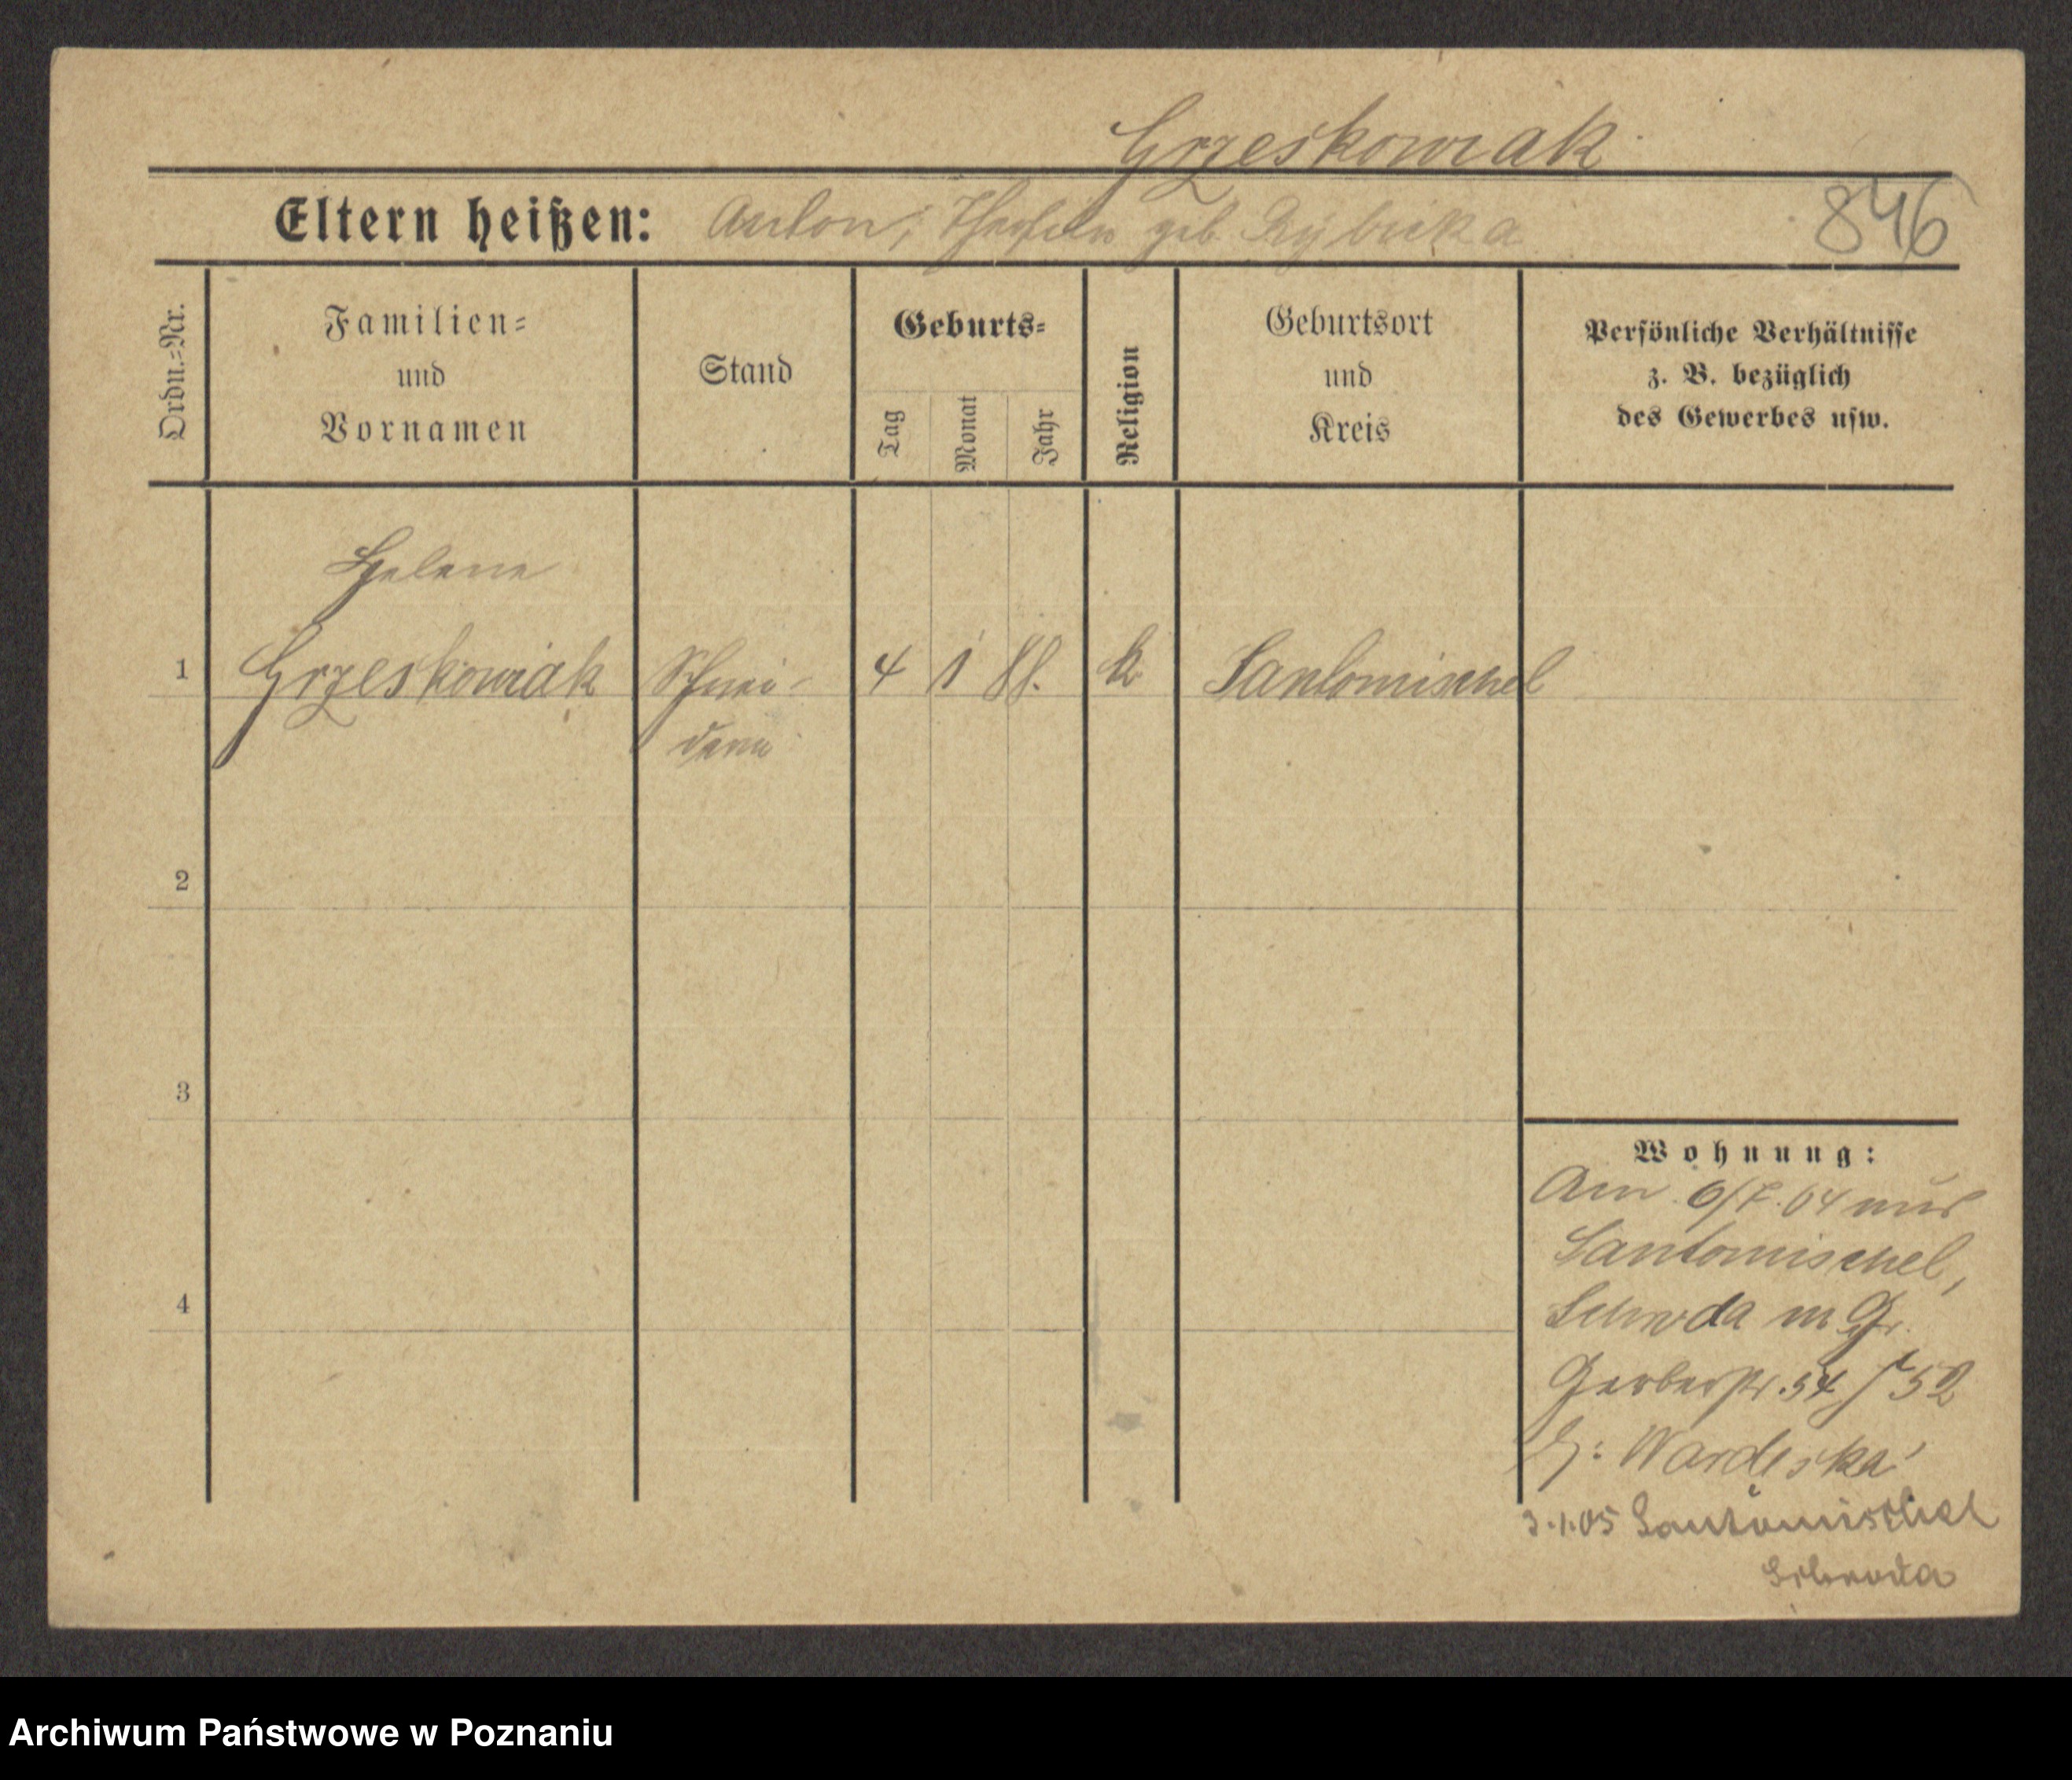 Grzeskowiak
Eltern heißen: Anton, geb. Rybicka
846
Ordn.=Nr.
Familien=
und
Vornamen
Stand
Geburts=
Tag
Monat
Jahr
Religion
Geburtsort
und
Kreis
Persönliche Verhältnisse
z. B. bezüglich
des Gewerbes usw.
Helene
1 Grzeskowiak Schnei- 4 1 88. k Santomischel
derin
2
3
4
Wohnung:
Am 6/7. 04 aus
Santomischel,
Schroda in Gr.
Gerberstr. 54 / 52
b: Wardeska
3.1.05 Santomischel
Schroda
Archiwum Państwowe w Poznaniu